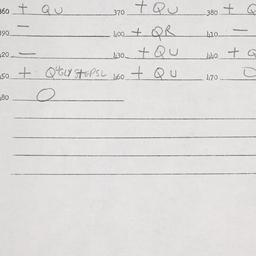 360 + QU 370 + QU 380 + Q
390 — 400 + QR 410 —
420 — 430 + QU 440 + Q
450 + 460 + QU 470 O
480 O